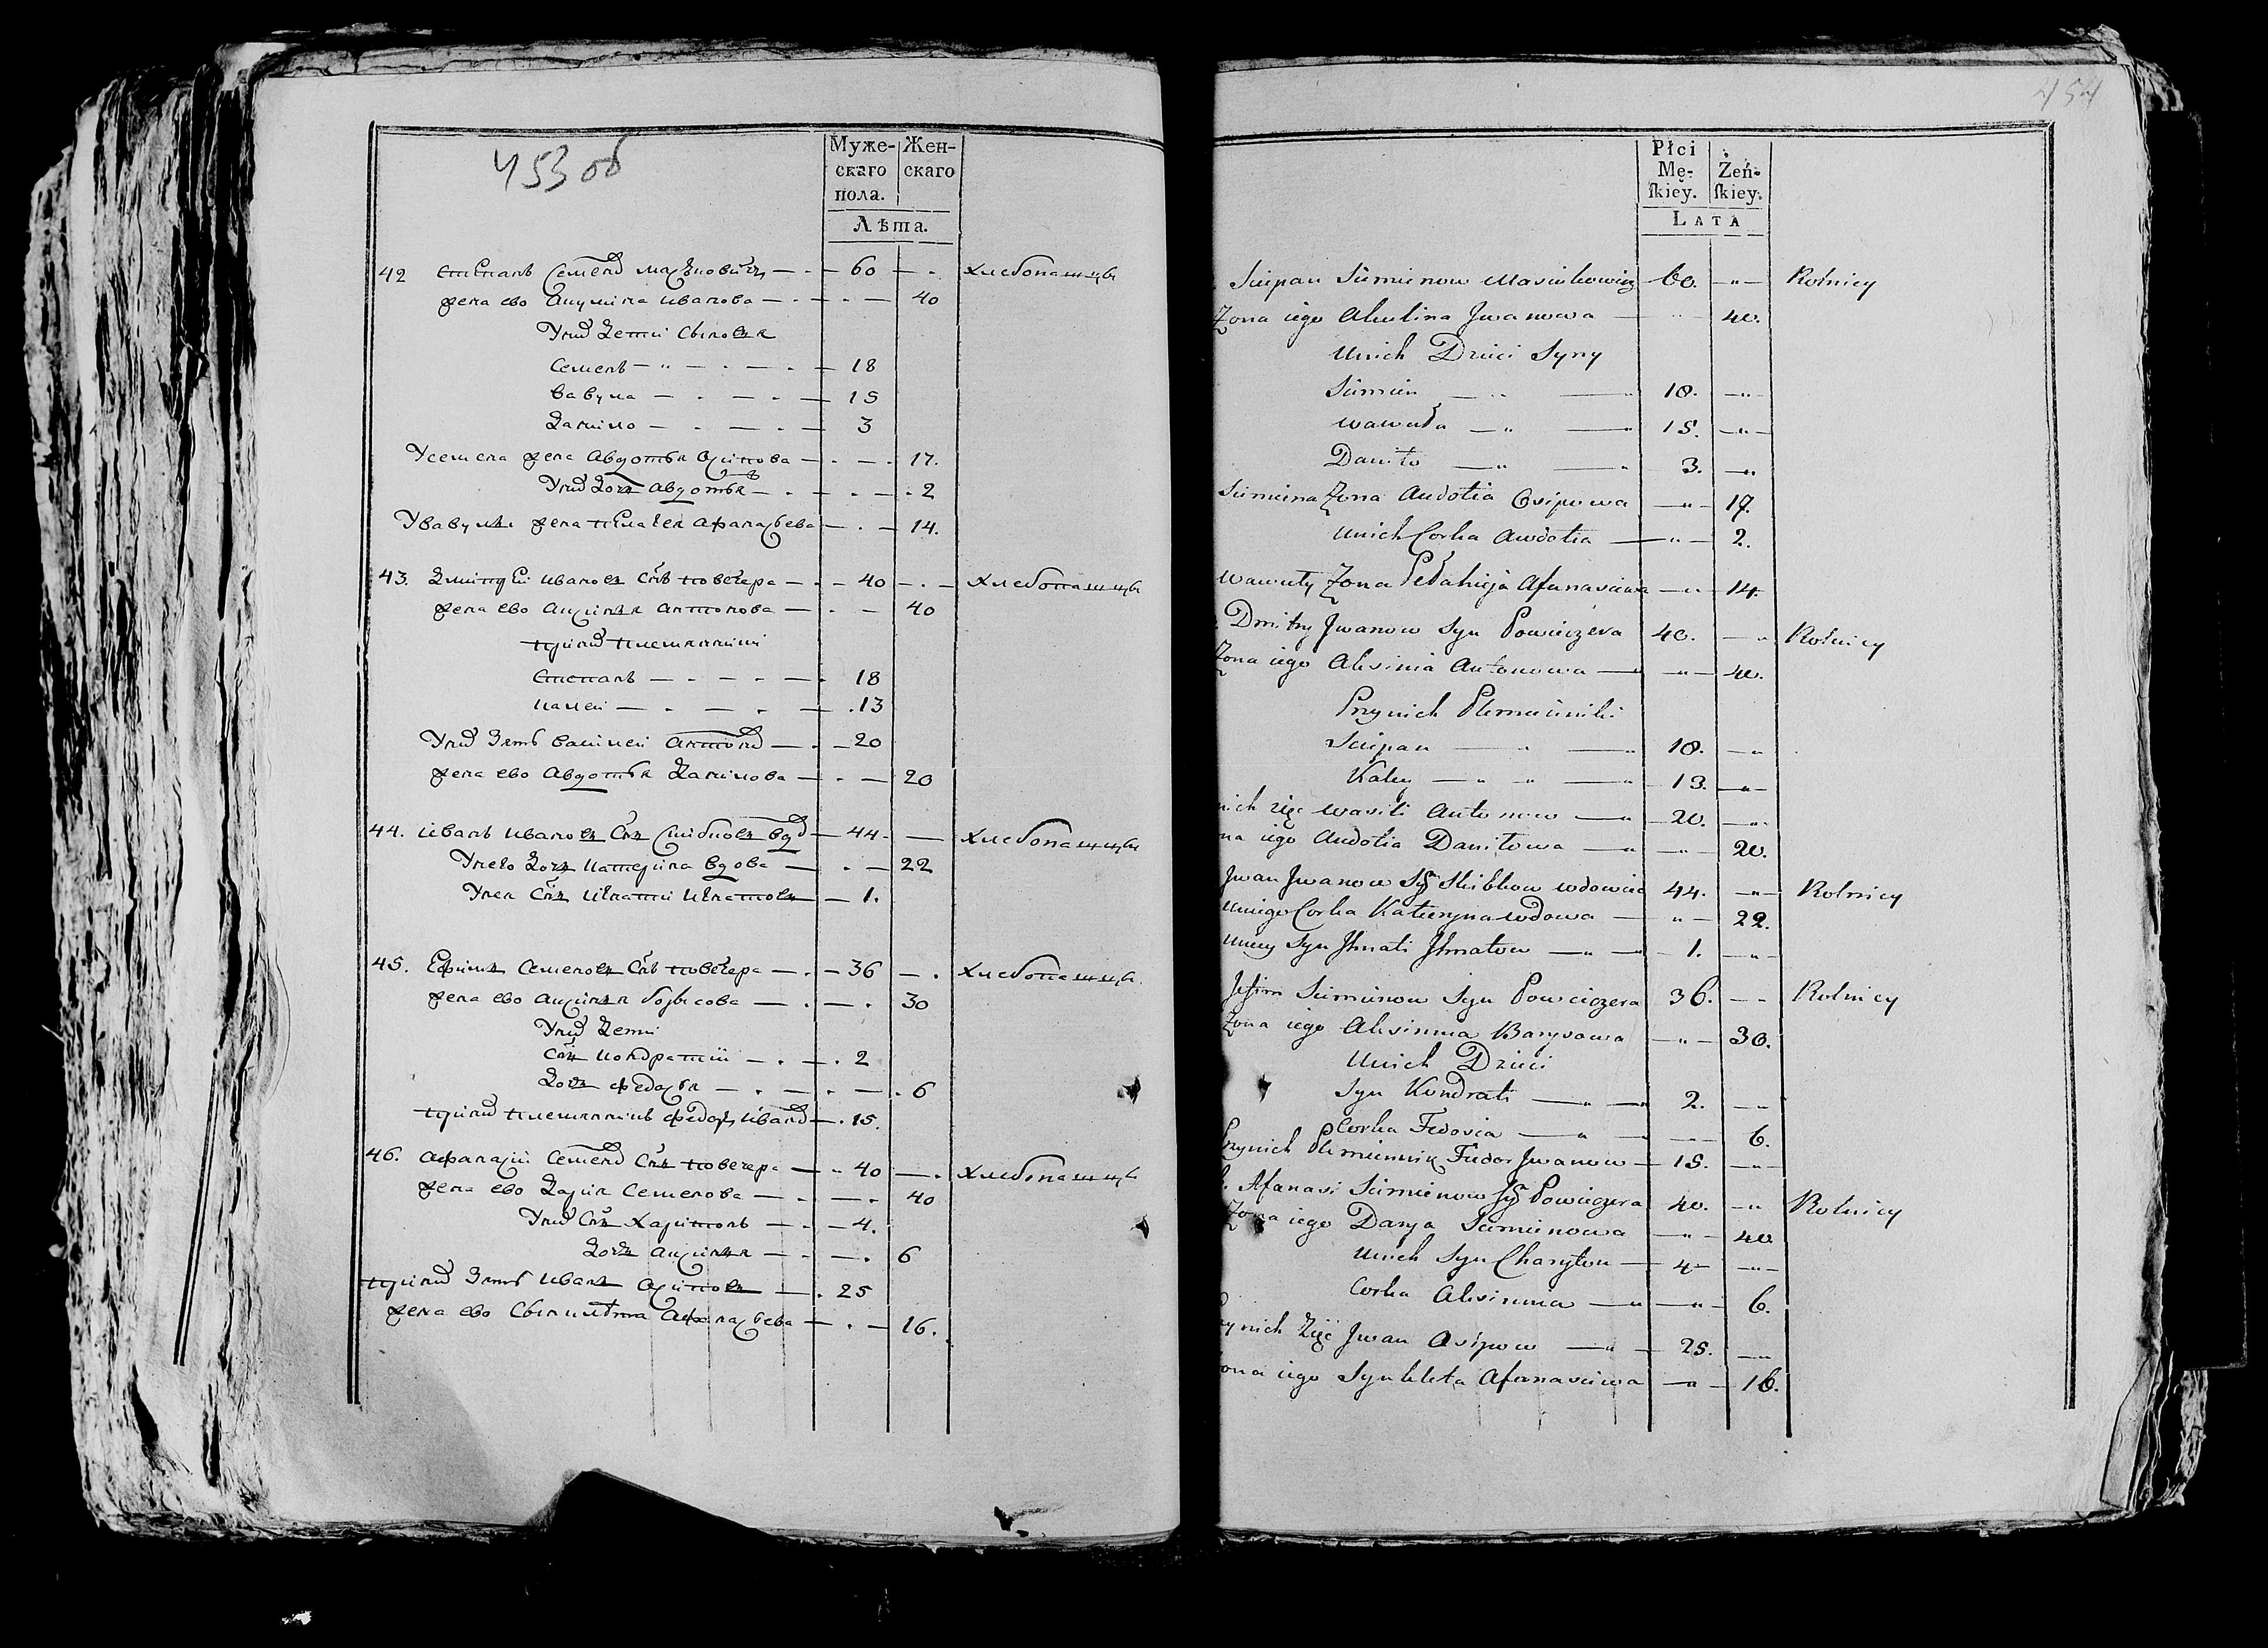 453 об
Муже- Жен-
скаго скаго
пола.
Лѣта.
42 Степанъ Семенов 60 хлебопашцы
жена ево Акулина иванова 40
У них дети сыновя
Семенъ 18
Вавула 15
Данило 3
У семена жена Авдотья Осипова 17.
У них дочь авдотья 2
У Вавулы жена пелагея афанасьева 14.
43. Дмитрей Иванов Снъ повечера 40 хлебопашцы
жена ево аксинья антонова 40
при них племянники
Степанъ 18
калей 13
У них Зять василей антонов 20
жена ево авдотья Данилова 20
44. иванъ иванов Снъ Скибков вдов 44 хлебопашцы
У него дочь катерина вдова 22
У нея Снъ игнатей игнатов 1.
45. Ефимъ Семенов Снъ повечера 36 хлебопашцы
жена ево аксинья борисова 30
У них дети
Снъ кондратий 2
дочь федосья 6
при них племянникъ федоръ иванов 15.
46. афанасей Семенов Снъ повечера 40 хлебопашцы
жена ево Дарья Семенова 40
У них Снъ харитонъ 4.
дочь аксинья 6
при них Зять иванъ Осипов 25
жена ево Сынклета Афанасьева 16.
454
Płci
Mę- Żeń-
skiey. skiey.
LATA
Sciepan Siemienow Masiukowicz 60. Rolnicy
Zona iego Akulina Jwanowa 40.
Unich Dzieci Syny
Siemien 18.
Wawuła 15.
Daniło 3.
Siemiena Zona Audotia Osipowa 17.
Unich Corka Awdotia 2.
Wawuły Zona Pełahieja Afanasiewa 14.
Dmitry Jwanow Syn Powieczera 40. Rolnicy
Zona iego Aksinia Antonowa 40.
Przynich Plemieniki
Sciepan 18.
Kaley 13.
nich zięc Wasili Antonow 20.
na iego Audotia Daniłowa 20.
Jwan Jwanow Sy Skibkow wdowiec 44. Rolnicy
Uniego Corka Kateryna wdowa 22.
Uniey Syn Jhnati Jhnatow 1.
Jefim Siemienow Syn Powieczera 36. Rolnicy
Zona iego Aksinnia Barysowa 30.
Unich Dzieci
Syn Kondrati 2.
Corka Fedosia 6.
Przynich Plemiennik Fiedor Jwanow 15.
Afanasi Siemienow Sy Powieczera 40. Rolnicy
Zona iego Darya Siemienowa 40
Unich Syn Charyton 4
Corka Aksinnia 6.
rzynich Zięć Jwan Osipow 25.
ona iego Synkleta Afanasiewa 16.